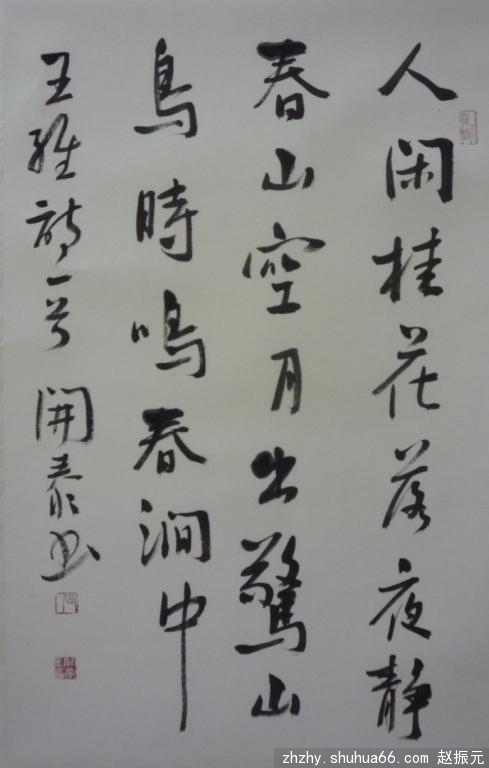 人闲桂花落夜静
春山空月出驚山
鳥時鳴春澗中
王維詩一首 開泰书
zhzhy.shuhua66.com 赵振元